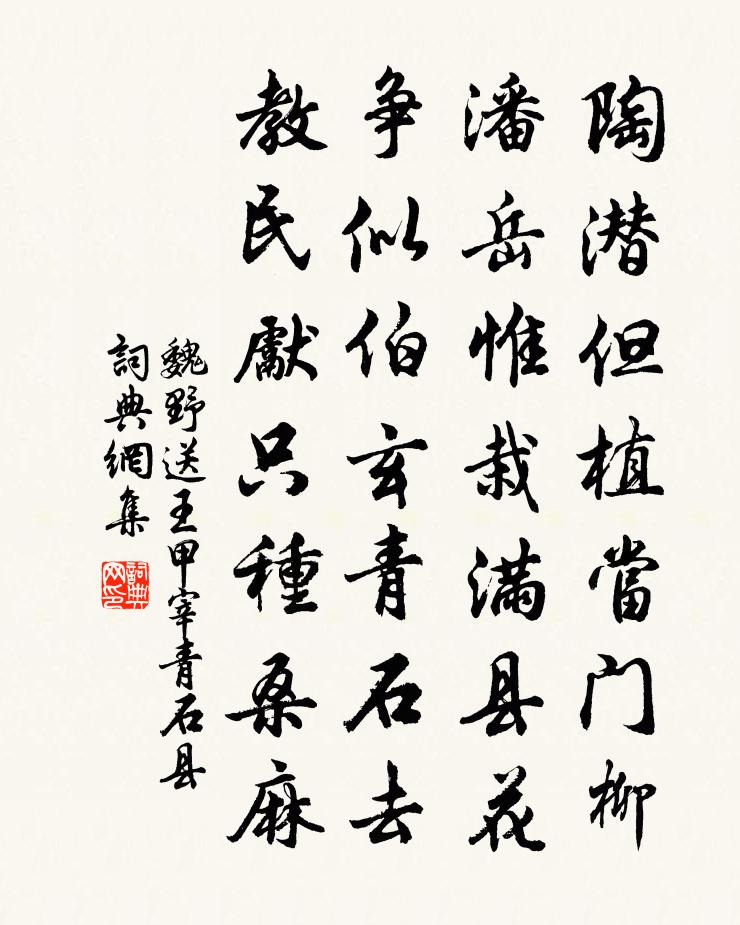 陶潜但植當门柳
潘岳惟栽满县花
争似伯玄青石去
教民獻只種桑麻
魏野送王甲宰青石县
詞典網集
詞典网印